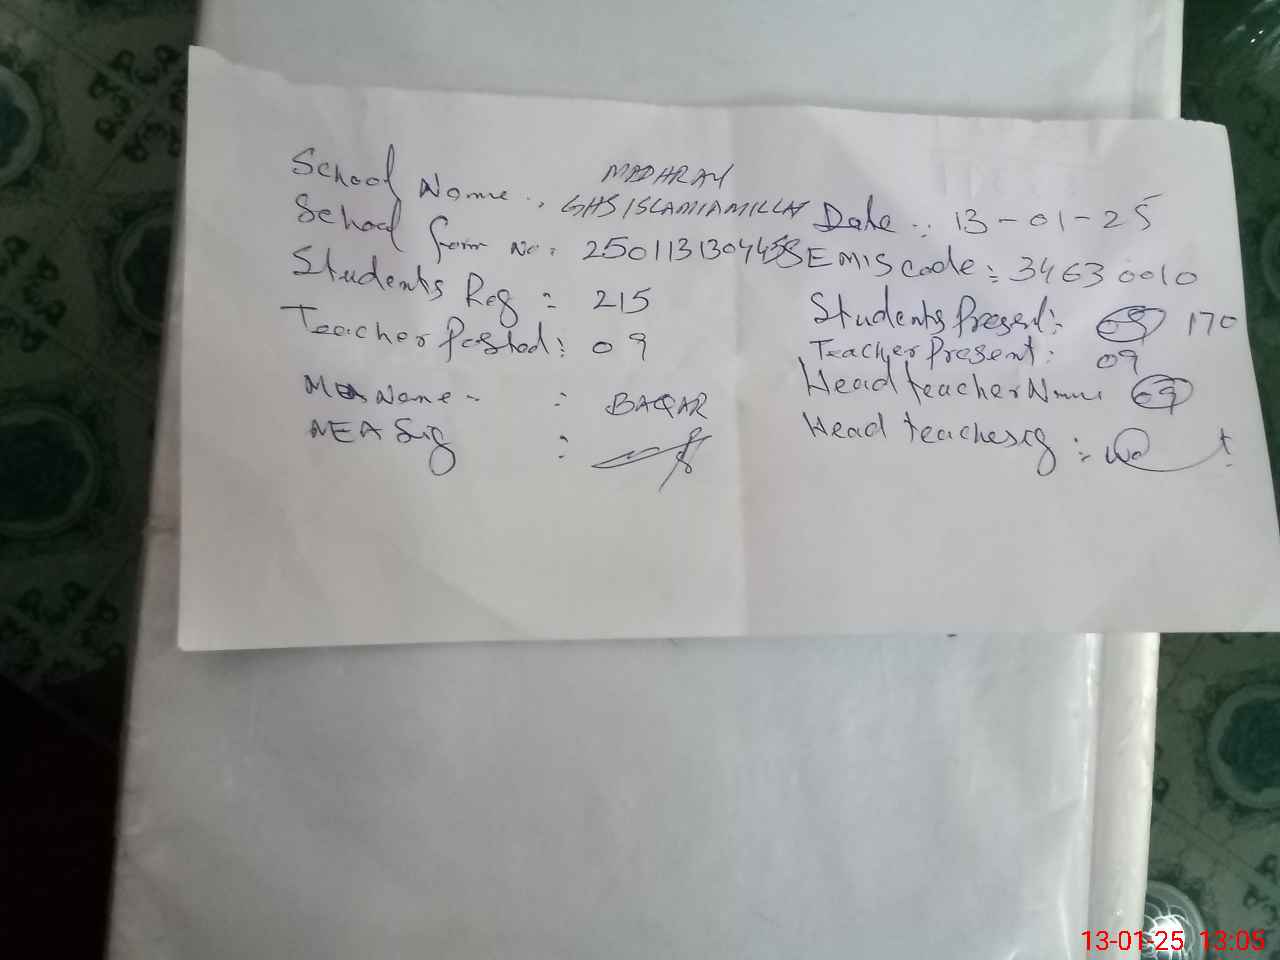 MADHRAY
School Name : GHS ISLAMIA MILLAT Date : 13-01-25
School form No : EMIS code : 34630010
Students Reg : 215 Students Present : 170
Teacher Posted : 09 Teacher Present : 09
MEA Name - : BAQAR Head teacher Name 09
MEA Sig : Head teacher sig :
13-01-25 13:05